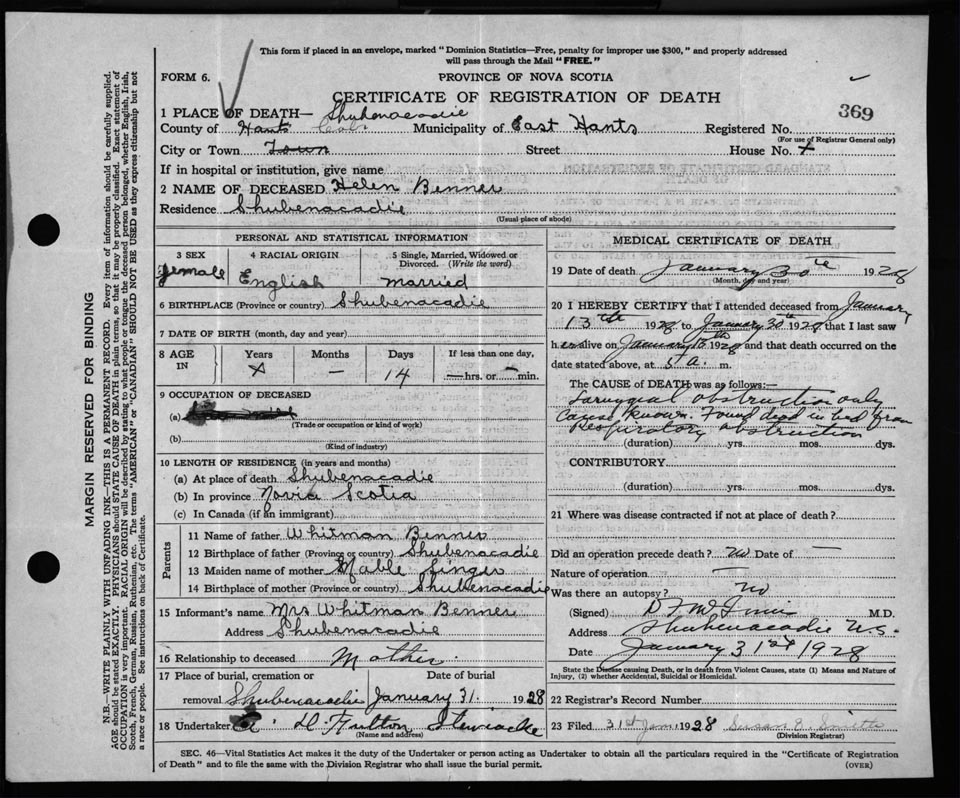 This form if placed in an envelope, marked "Dominion Statistics—Free, penalty for improper use $300," and properly addressed
will pass through the Mail "FREE."
FORM 6.
PROVINCE OF NOVA SCOTIA
CERTIFICATE OF REGISTRATION OF DEATH
369
1 PLACE OF DEATH— Shubenacadie
County of Hants Col. Municipality of East Hants Registered No.
(For use of Registrar General only)
City or Town Town Street House No. x
If in hospital or institution, give name
2 NAME OF DECEASED Helen Benner
Residence Shubenacadie
(Usual place of abode)
PERSONAL AND STATISTICAL INFORMATION
3 SEX 4 RACIAL ORIGIN 5 Single, Married, Widowed or Divorced. (Write the word)
female English married
6 BIRTHPLACE (Province or country) Shubenacadie
7 DATE OF BIRTH (month, day and year)
8 AGE IN Years Months Days If less than one day,
x — 14 — hrs. or — min.
9 OCCUPATION OF DECEASED
(a)
(Trade or occupation or kind of work)
(b)
(Kind of industry)
10 LENGTH OF RESIDENCE (in years and months)
(a) At place of death Shubenacadie
(b) In province Novia Scotia
(c) In Canada (if an immigrant)
Parents
11 Name of father Whitman Benner
12 Birthplace of father (Province or country) Shubenacadie
13 Maiden name of mother Mable Singer
14 Birthplace of mother (Province or country) Shubenacadie
15 Informant's name Mrs Whitman Benner
Address Shubenacadie
16 Relationship to deceased Mother
17 Place of burial, cremation or Date of burial
removal Shubenacadie January 31. 1928
18 Undertaker D. Fulton Stewiacke
(Name and address)
MEDICAL CERTIFICATE OF DEATH
19 Date of death January 30th 1928
(Month, day and year)
20 I HEREBY CERTIFY that I attended deceased from January
13th 1928 to January 30th 1928 that I last saw
her alive on January 15th 1928 and that death occurred on the
date stated above, at 5 a. m.
The CAUSE of DEATH was as follows:—
Laryngial obstruction only
Cause known. Found dead in bed from
Respiratory obstruction
(duration) yrs. mos. dys.
CONTRIBUTORY
(duration) yrs. mos. dys.
21 Where was disease contracted if not at place of death?
Did an operation precede death? No Date of —
Nature of operation —
Was there an autopsy? No
(Signed) M.D.
Address Shubenacadie N.S.
Date January 31st 1928
State the Disease causing Death, or in death from Violent Causes, state (1) Means and Nature of
Injury, (2) whether Accidental, Suicidal or Homicidal.
22 Registrar's Record Number
23 Filed 31st Jan. 1928 Susan E. Smith
(Division Registrar)
SEC. 46—Vital Statistics Act makes it the duty of the Undertaker or person acting as Undertaker to obtain all the particulars required in the "Certificate of Registration
of Death" and to file the same with the Division Registrar who shall issue the burial permit.
(OVER)
MARGIN RESERVED FOR BINDING
N.B.—WRITE PLAINLY WITH UNFADING INK—THIS IS A PERMANENT RECORD. Every item of information should be carefully supplied.
AGE should be stated EXACTLY. PHYSICIANS should STATE CAUSE OF DEATH in plain terms, so that it may be properly classified. Exact statement of
OCCUPATION is very important. RACIAL ORIGIN will be described by stating to what people or tongue the deceased person belonged, whether English, Irish,
Scotch, French, German, Russian, Ruthenian, etc. The terms "AMERICAN" or "CANADIAN" SHOULD NOT BE USED as they express citizenship but not
a race or people. See instructions on back of Certificate.